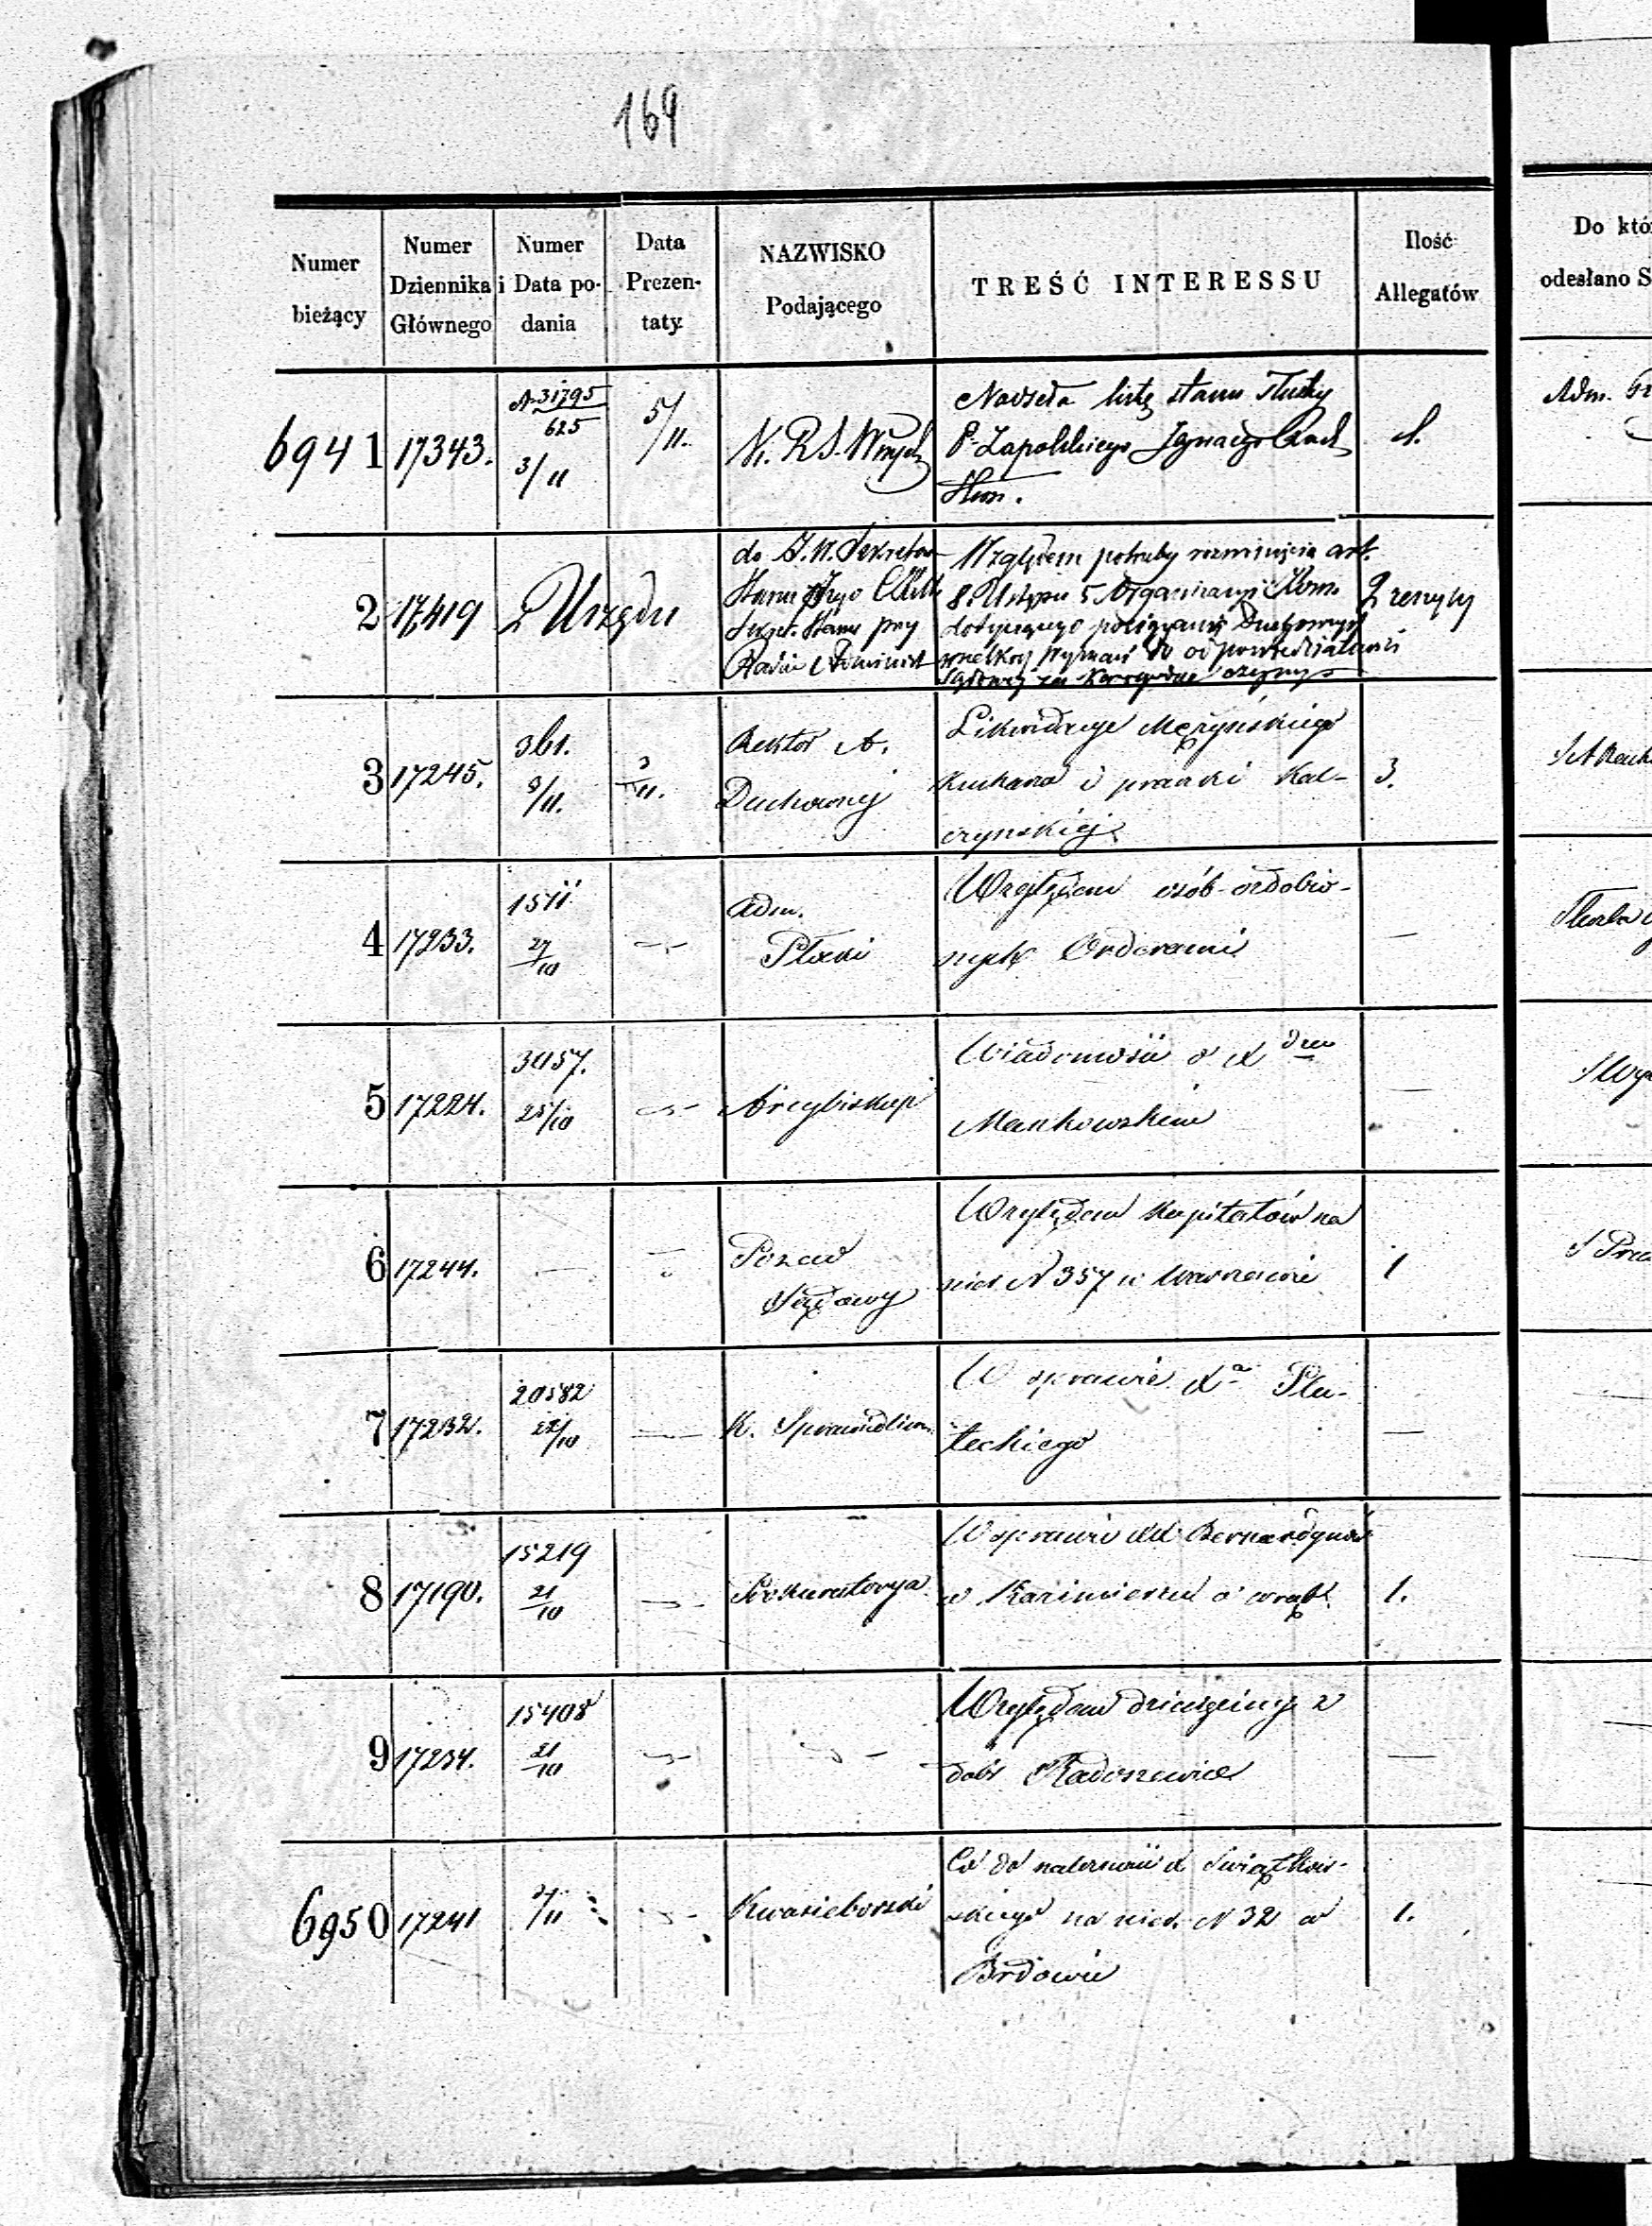 169
Numer bieżący
Numer Dziennika Głównego
Numer i Data podania
Data Prezentaty.
NAZWISKO Podającego
TREŚĆ INTERESSU
Ilość Allegatów
Do któ
odesłano S
6941 17343. N 31795/625 3/11 5/11.
Nadseła listę stanu służby
P. Zapolskiego Ignacego
Adm.
2 17419 z Urzędu
do J. W. Sekretarza
Stanu
Sekr. Stanu przy
Radzie Administ
Względem potrzeby rozwinięcia art.
8. Ustępu 5 Organizacyi Kom.
dotyczącego pociągania Duchownych
wszelkich Wyznań do odpowiedzialności
Sądowej za
3 17245. 361. 3/11. 3/11.
Rektor A.
Duchownej
Likwidacye Męzyńskiego
Kucharza i praczki Kal-
czynskiej
3.
4 17233. 1511 27/10
Adm.
Płocki
Względem osób ozdobio-
nych Orderami
5 17224. 3057. 25/10
Arcybiskup
Wiadomość o X
Mankowskim
6 17244.
Pozew
Sądowy
Względem Kapitałów na
nier. N 357 w Warszawie
1
7 17232. 20582 22/10
K. Sprawiedliw.
W sprawie Xa
teckiego
8 17190. 15219 21/10
Prokuratorya
W sprawie XX Bernardynów
w Kazimierzu o wrąb
1.
9 17234. 15408 21/10
Względem dziesięciny z
dóbr Radoszewice
6950 17241
Kwasieborski
Co do należności X Świątkow-
skiego na nier. N 32 w
Brdowie
1.